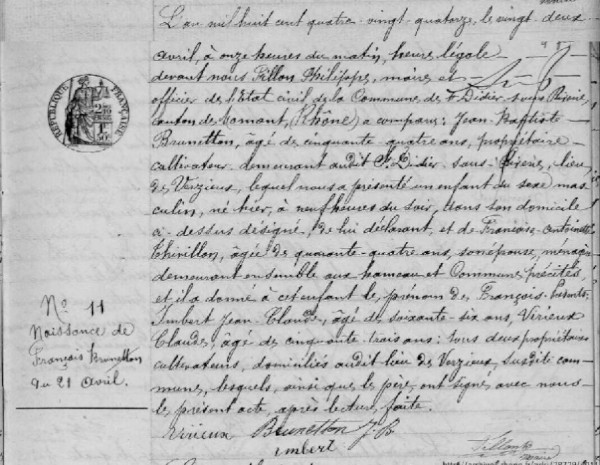 L'an mil huit cent quatre-vingt-quatorze, le vingt deux
avril, à onze heures du matin, heure légale
devant nous Pillon Philippe, maire et
officier de l'Etat civil de la Commune de St Didier sous Riverie
canton de Mornant, (Rhône) a comparu: Jean-Baptiste
Brunetton, âgé de cinquante quatre ans, propriétaire
cultivateur demeurant audit St Didier-sous-Riverie, lieu
de Verzieux, lequel nous a présenté un enfant du sexe mas-
culin, né hier, à neuf heures du soir, dans son domicile
ci-dessus désigné, de lui déclarant, et de Françoise-Antoinette
Thivillon, âgée de quarante-quatre ans, son épouse, ménagère
demeurant ensemble aux hameau et Commune précités
et il a donné à cet enfant le prénom de François. Présents
Imbert Jean-Claude, âgé de soixante-six ans, Virieux
Claude, âgé de cinquante-trois ans: tous deux propriétaires
cultivateurs, domiciliés audit lieu de Verzieux, susdite com-
mune, lesquels, ainsi que le père, ont signé avec nous
le présent acte, après lecture faite.
virieux Brunetton J B
imbert
maire
REPUBLIQUE FRANÇAISE
No 11
Naissance de
François Brunetton
du 21 avril.